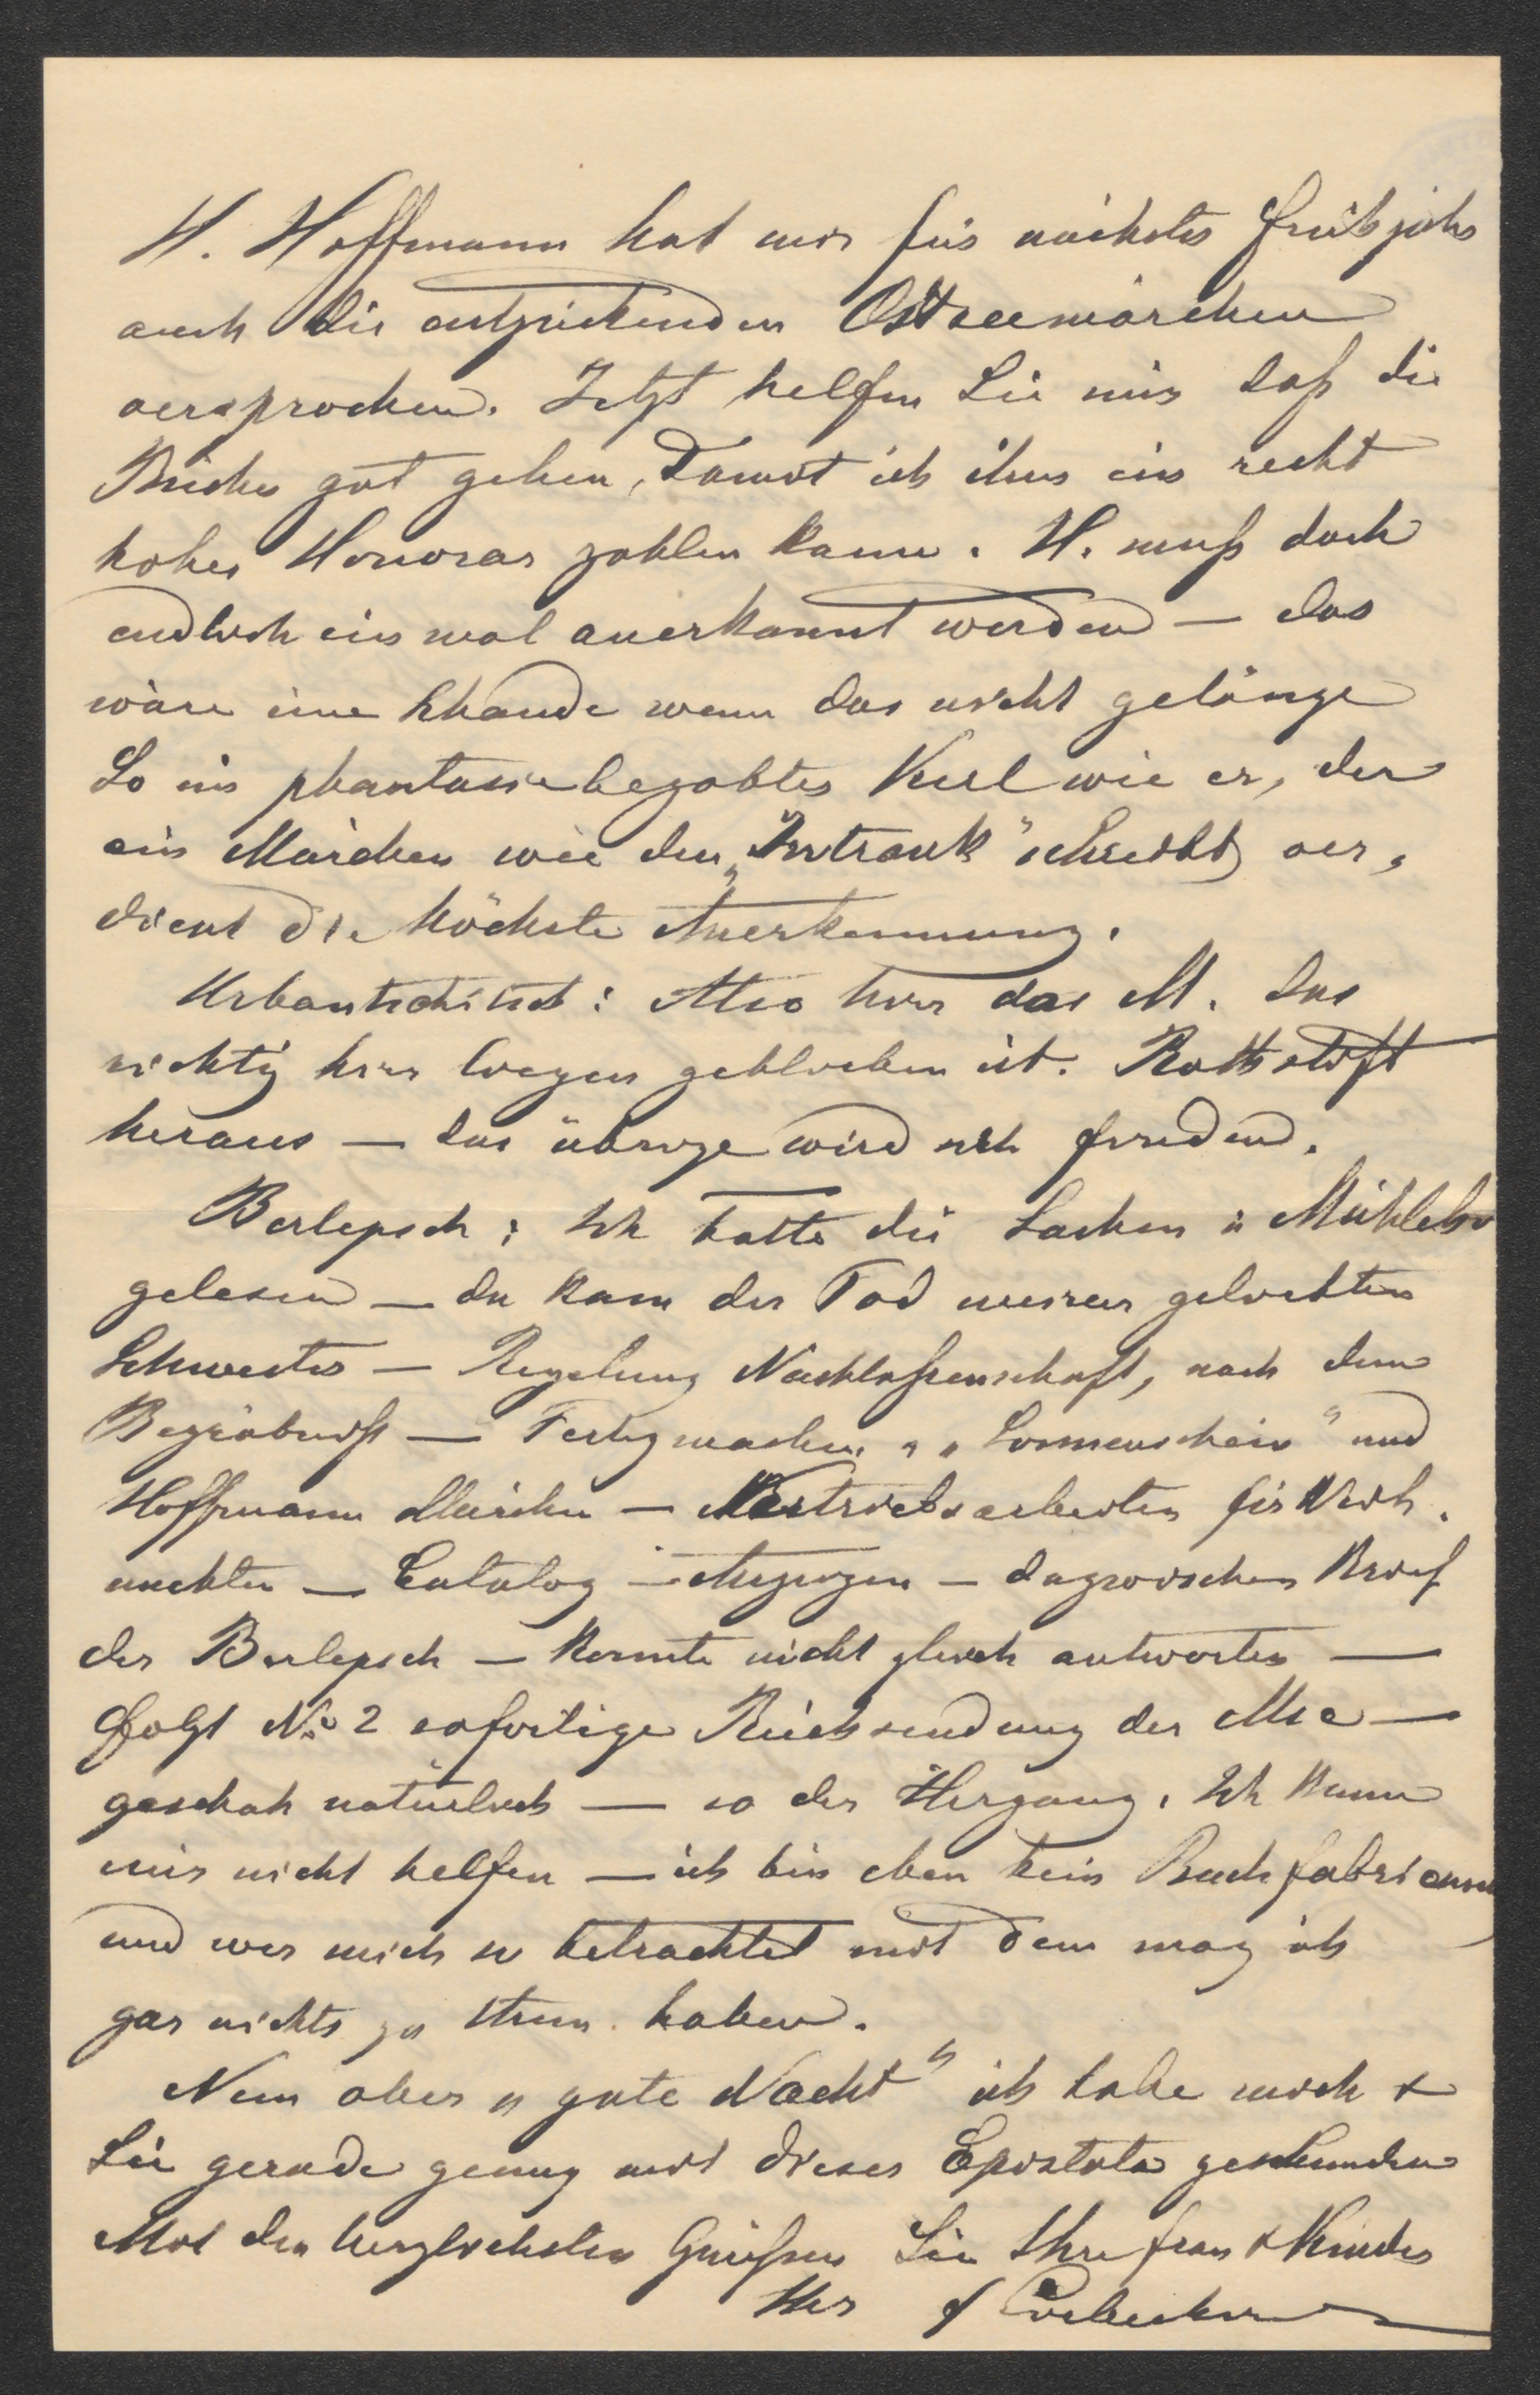 H. Hoffmann hat mir für nächstes Frühjahr
auch die entzückenden Ostseemärchen
versprochen. Jetzt helfen Sie mir daß die
Bücher gut gehen, damit ich ihm ein recht
hohes Honorar zahlen kann. H. muß doch
endlich einmal anerkannt werden — das
wäre eine Schande wenn das nicht gelänge
So ein phantasiebegabter Kerl wie er, der
ein Märchen wie den „Irrtrank" schreibt, ver-
dient die höchste Anerkennung.
Urbantschitsch: Also hier das M. das
richtig hier liegen geblieben ist. Rothstift
heraus — das übrige wird sich finden.
Berlepsch: Ich hatte die Sachen in
gelesen — da kam der Tod meiner geliebten
Schwester — Regelung Nachlaßenschaft, nach dem
Begräbniß — Fertigmachen „Sonnenschein" und
Hoffmann Märchen — Vertriebsarbeiten für Weih-
nachten — Catalog — Anzeigen — dazwischen Brief
der Berlepsch — konnte nicht gleich antworten —
folgt No 2 sofortige Rücksendung der Msc —
geschah natürlich — so der Hergang. Ich kann
mir nicht helfen — ich bin eben kein Buchfabrikant
und wer mich so betrachtet mit dem mag ich
gar nichts zu thun haben.
Nun aber „gute Nacht" ich habe mich &
Sie gerade genug mit dieser Epistola geschunden
Mit den herzlichsten Grüßen Sie Ihre Frau & Kinder
Ihr